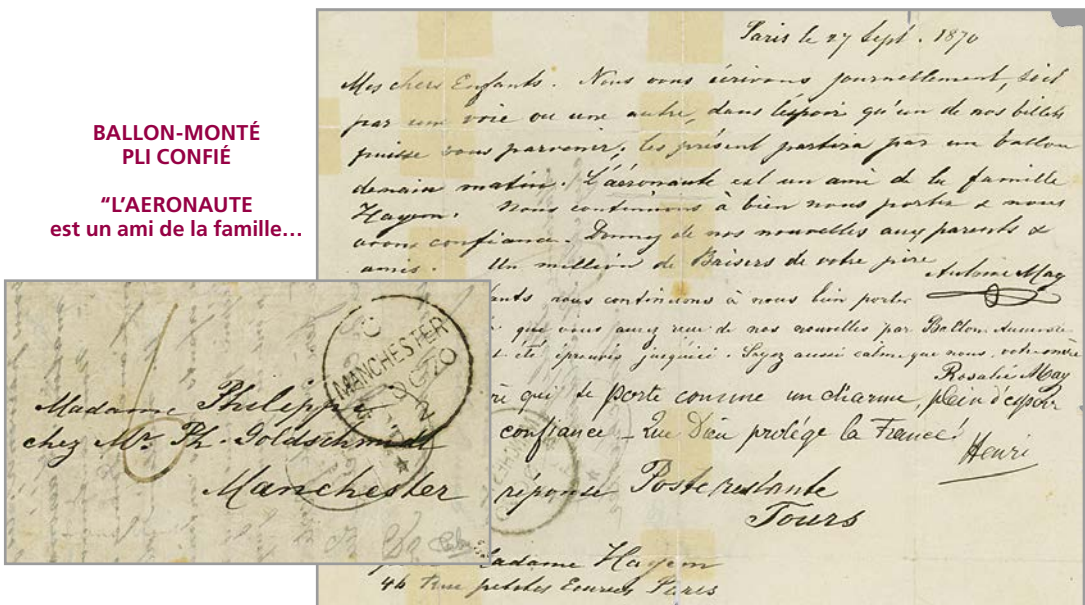 BALLON-MONTÉ
PLI CONFIÉ
"L'AERONAUTE
est un ami de la famille...
Paris le 27 Sept. 1870
Mes chers Enfants. Nous vous écrivons journellement, soit
par une voie ou une autre, dans l'espoir qu'un de nos billets
puisse vous parvenir. présent partira par un ballon
demain matin. L'aéronaute est un ami de la famille
Hayem. Nous continuons à bien nous porter & nous
avons confiance. Donnez de nos nouvelles aux parents &
amis. Un million de Baisers de votre père
Antoine May
nous continuons à nous bien porter
que vous aurez reçu de nos nouvelles par Ballon
été éprouvés jusqu'ici. Soyez aussi calme que nous, votre mère
Rosalie May
qui se porte comme un charme, plein d'espoir
confiance – Que Dieu protége la France!
Henri
réponse Poste restante
Tours
Madame Hayem
46 Rue petites Ecuries Paris
MANCHESTER
Madame Philippe
chez Mr. Ph. Goldschmidt
Manchester